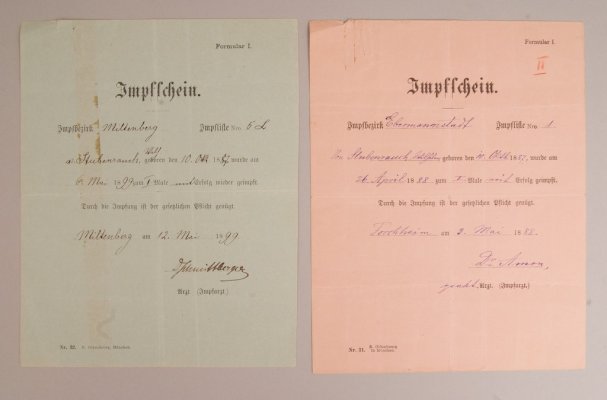 Formular I.
Impfschein.
Impfbezirk Miltenberg Impfliste Nro.
Stubenrauch geboren den 10. Okt. 18 wurde am
6. Mai 1899 zum Male mit Erfolg wieder geimpft.
Durch die Impfung ist der gesetzlichen Pflicht genügt.
Miltenberg am 12. Mai 1899.
Arzt (Impfarzt.)
Nr. 32.
Formular I.
II
Impfschein.
Impfbezirk Ebermannstadt Impfliste Nro. 1
Stubenrauch geboren den 10. Okt. 1887, wurde am
26. April 1888 zum I Male mit Erfolg geimpft.
Durch die Impfung ist der gesetzlichen Pflicht genügt.
Forchheim am 2. Mai 1888.
Dr.
Arzt (Impfarzt.)
Nr. 31.
in München.